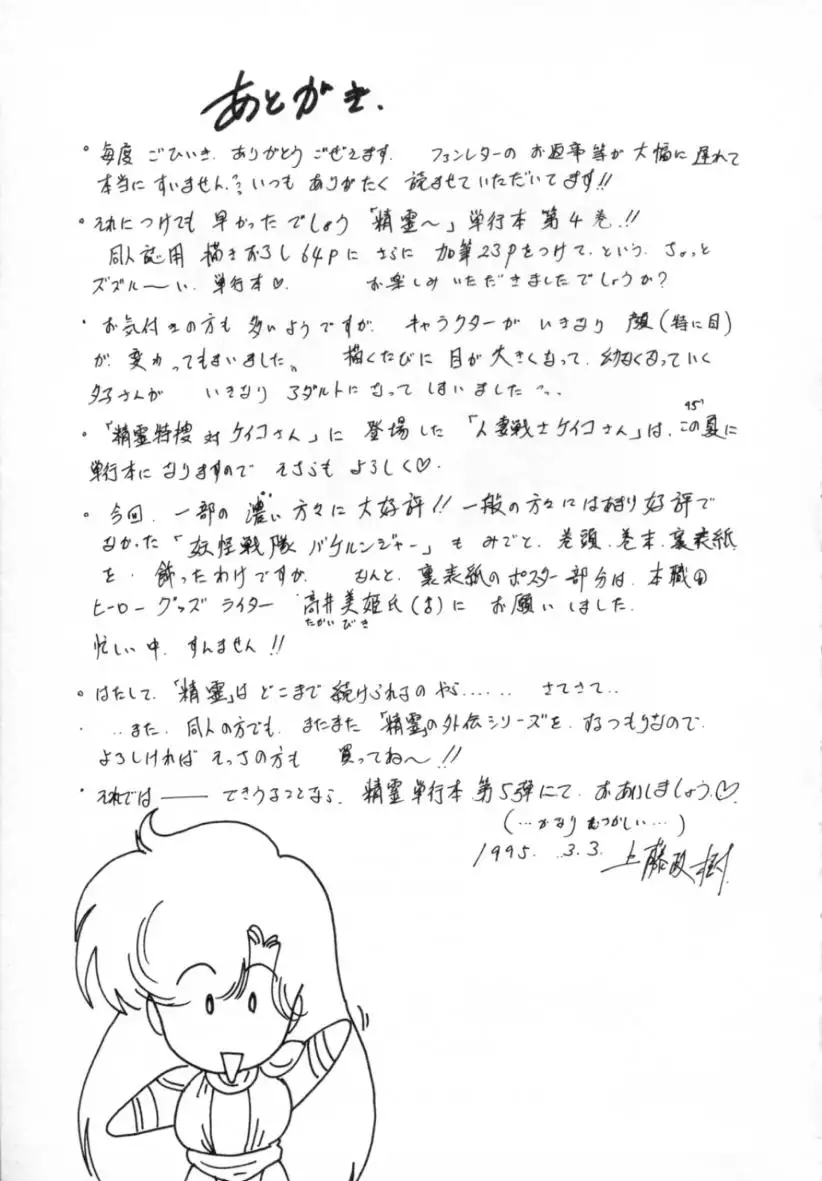 あとがき.
・毎度 ごひいき ありがとう ごぜえます. ファンレターの お返事等が 大幅に 遅れて
本当に すいません. いつも ありがたく 読ませて いただいてます!!
・それにつけても 早かったでしょう「精霊〜」単行本 第4巻!!
同人誌用 描きおろし 64Pに さらに 加筆23Pをつけて、という. ちょっと
ズズルーい. 単行本♡. お楽しみ いただきましたでしょうか?
・お気付きの方も 多いようですが、キャラクターが いきなり 顔(特に目)
が、変わってしまいました。 描くたびに 目が 大きくなって、幼くなっていく
タ子さんが いきなり アダルトに なって しまいました…
・「精霊特捜 対 ケイコさん」に 登場した「人妻戦士ケイコさん」は、この夏に
95'
単行本に なりますので そちらも よろしく♡.
・今回. 一部の 濃い 方々に 大好評!! 一般の方々には あまり 好評で
なかった「妖怪戦隊 バケルンジャー」も みごと、巻頭、巻末、裏表紙
を 飾ったわけですが、 なんと、裏表紙の ポスター部分は、本職の
ヒーロー グッズ ライター 高井美姫氏(♀)に お願いしました.
たかい びき
忙しい中、すんません!!
・はたして、「精霊」は どこまで 続けられるの やら…… さてさて‥
・‥また、同人の方でも、またまた「精霊」の外伝シリーズを、するつもりなので、
よろしければ そっちの方も 買ってね〜!!
・それでは—— できうることなら、精霊単行本 第5弾にて、お あいしましょう♡.
(…かなり むつかしい…)
1995. 3.3. 上藤政樹